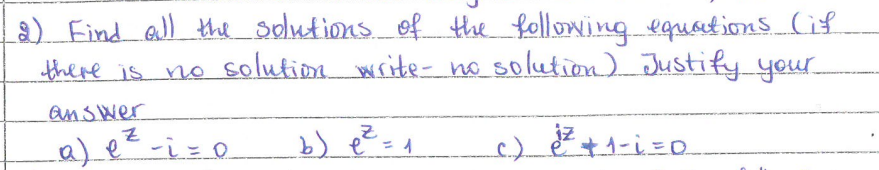 2) Find all the solutions of the following equations (if
there is no solution write- no solution) Justify your
answer
a) e^z - i = 0 b) e^z = 1 c) e^{iz} + 1 - i = 0